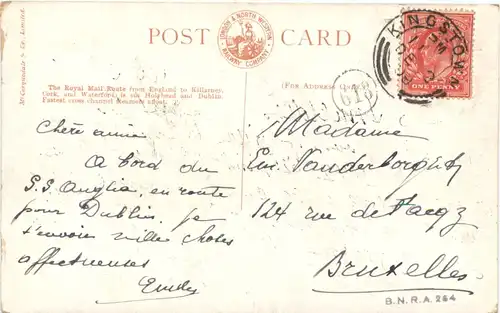 McCorquodale & Co., Limited.
POST CARD
LONDON & NORTH WESTERN
RAILWAY COMPANY
The Royal Mail Route from England to Killarney,
Cork, and Waterford, is via Holyhead and Dublin.
Fastest cross channel steamers afloat.
(For Address Only.)
KINGSTOWN
ONE PENNY
Chère amie
A bord du
S.S. Anglia, en route
pour Dublin, je
t'envoie mille choses
affectueuses
Emily
Madame
Em. Vanderborght
124 rue de
Bruxelles
B.N.R.A. 264